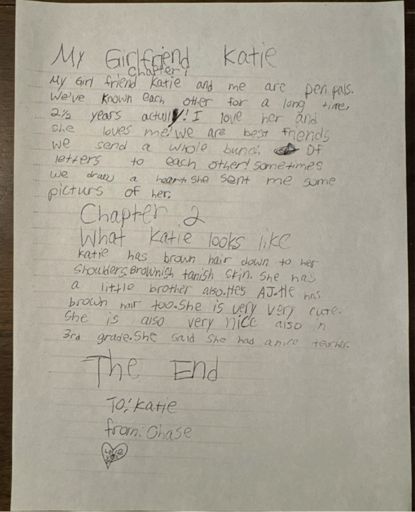 My Girlfriend Katie
Chapter 1
My Girl friend Katie and me are pen pals.
We've known each other for a long time,
2½ years actully! I love her and
she loves me! We are best friends
we send a whole bunch Of
letters to each other! sometimes
we draw a heart. she sent me some
picturs of her.
Chapter 2
What Katie looks like
Katie has brown hair down to her
shoulders, Brownish tanish skin. She has
a little brother also. He's AJ. He has
brown hair too. She is very very cute.
She is also very nice also n
3rd grade. She said she had a nice teacher.
The End
To: Katie
from: Chase